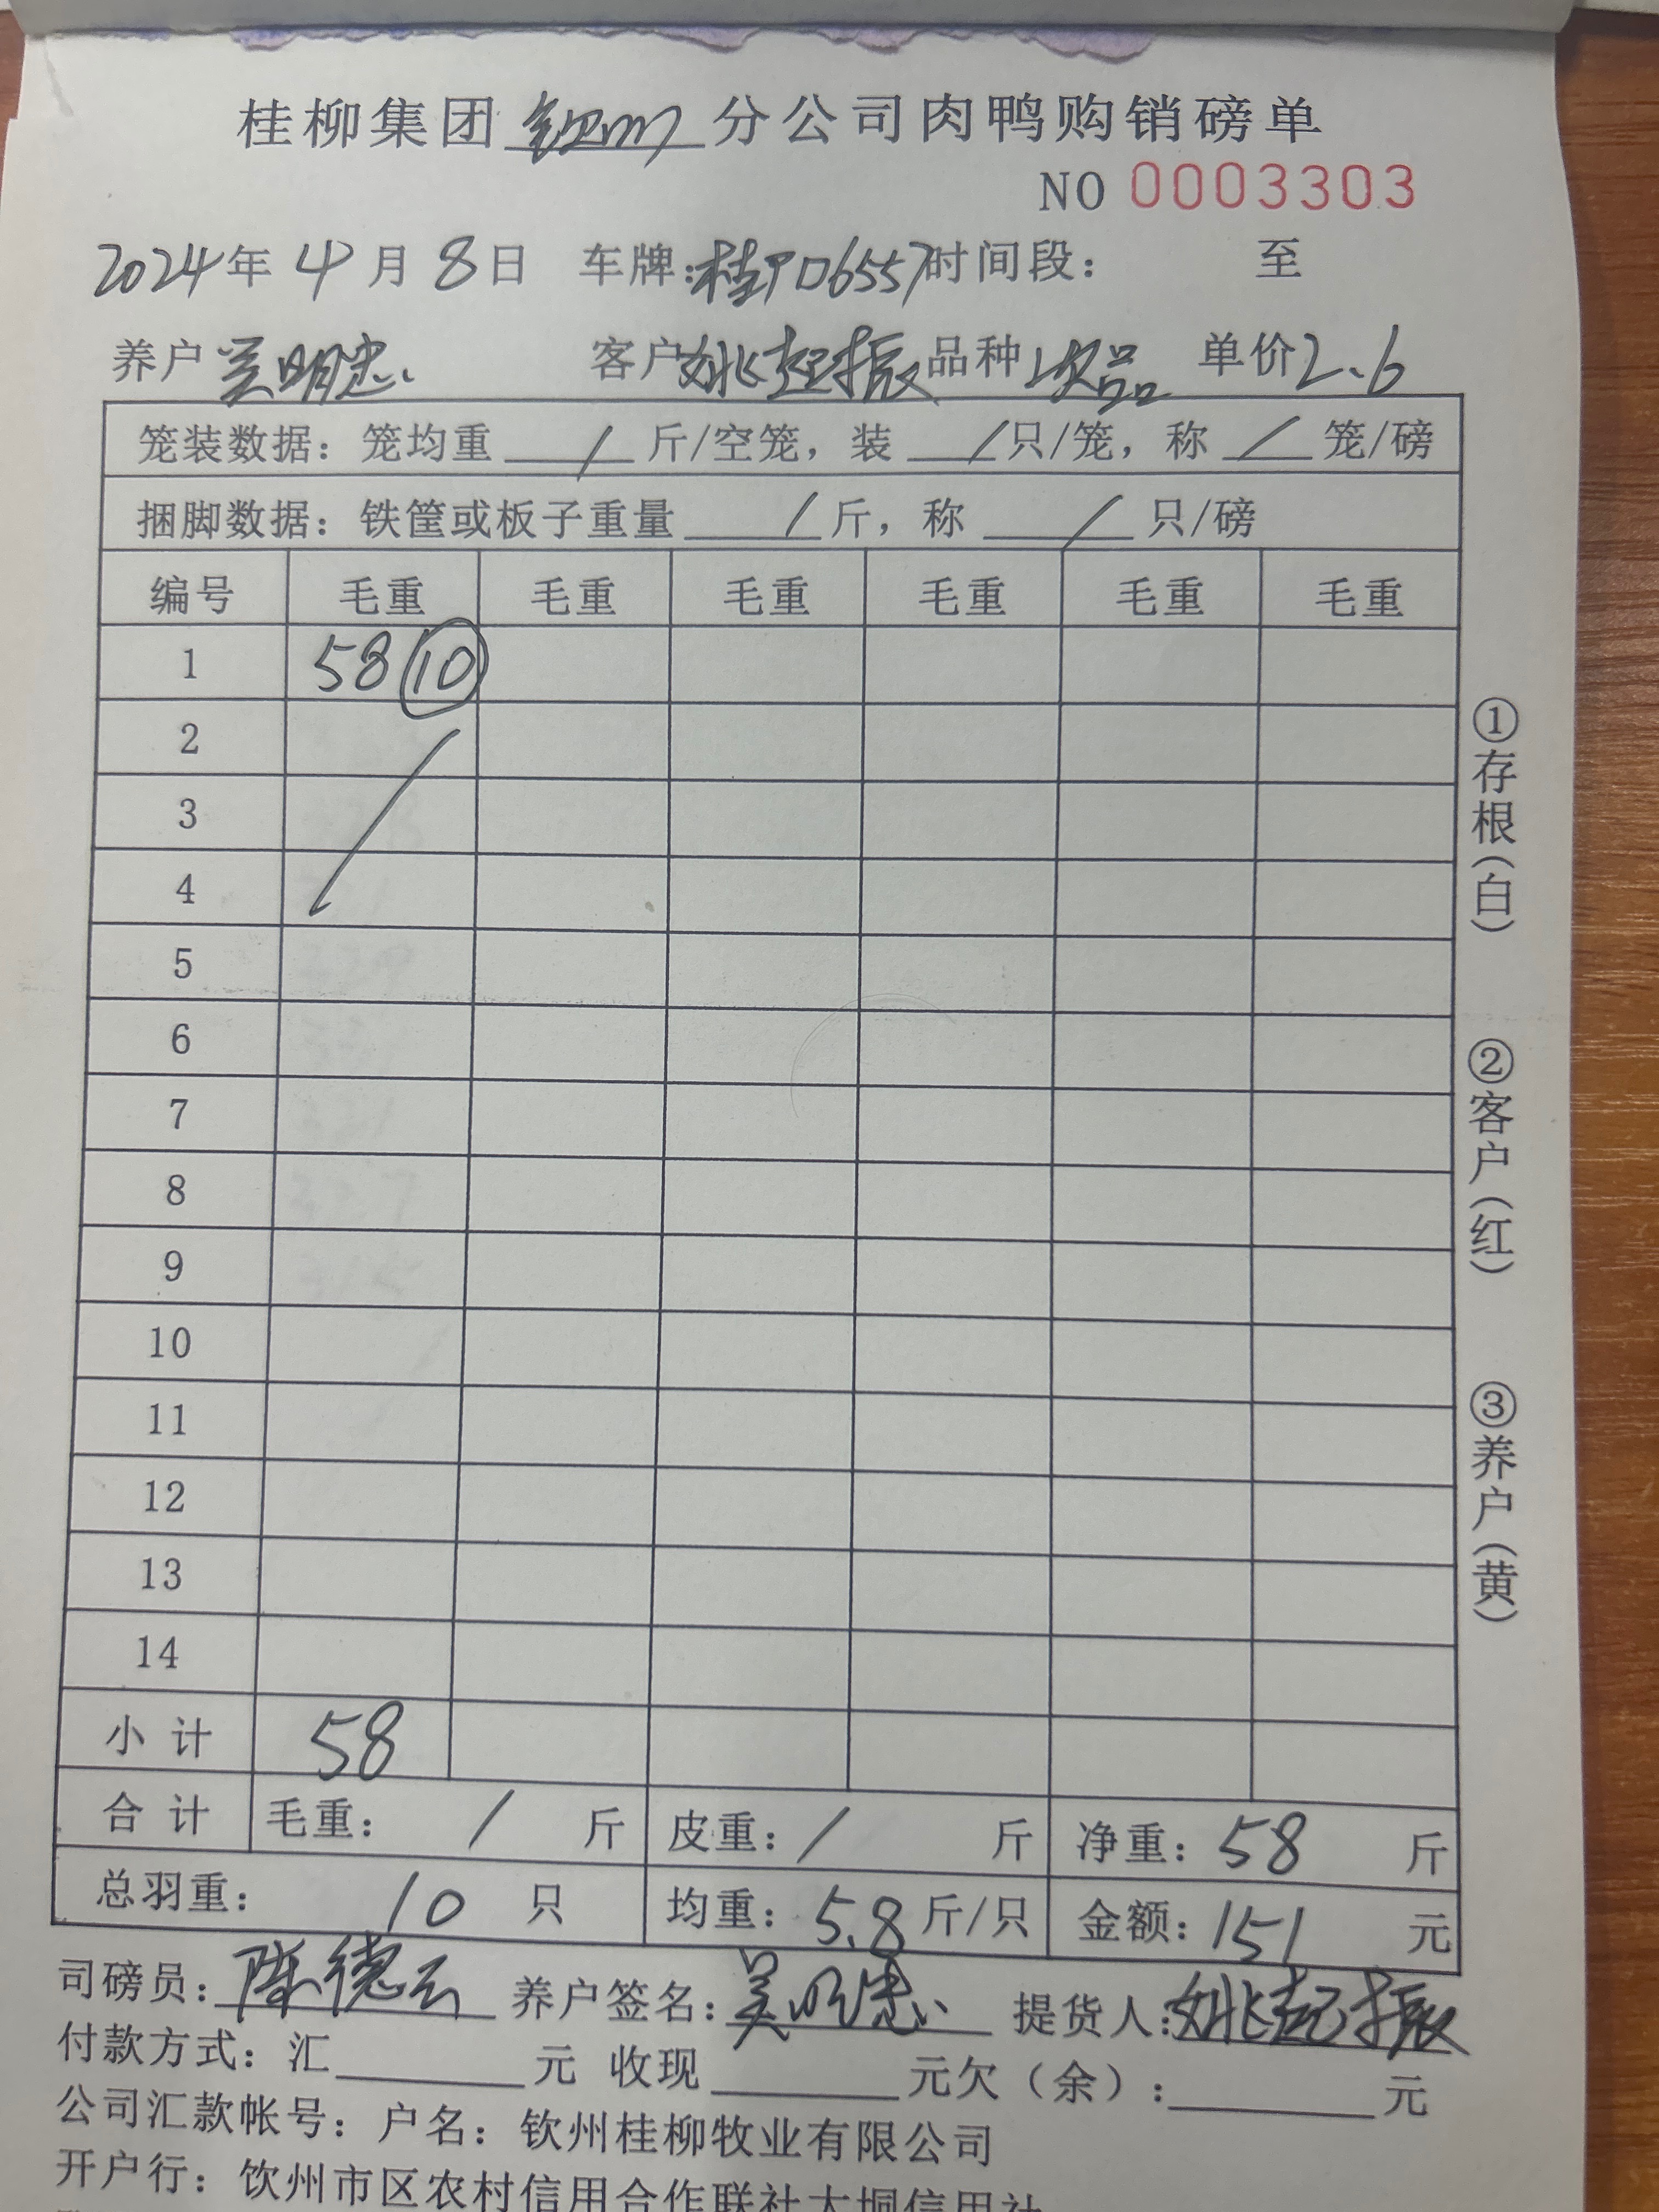 桂柳集团钦州分公司肉鸭购销磅单
NO 0003303
2024年4月8日 车牌:桂PD6557时间段: 至
养户吴明忠 客户姚起振品种次品 单价2.6
笼装数据：笼均重 / 斤/空笼，装 / 只/笼，称 / 笼/磅
捆脚数据：铁筐或板子重量 / 斤，称 / 只/磅
编号 毛重 毛重 毛重 毛重 毛重 毛重
1 58 ⑩
2
3
4
5
6
7
8
9
10
11
12
13
14
小计 58
合计 毛重： / 斤 皮重： / 斤 净重：58 斤
总羽重： 10 只 均重：5.8斤/只 金额：151 元
司磅员：陈德云 养户签名：吴明忠 提货人：姚起振
付款方式：汇 元 收现 元欠（余）： 元
公司汇款帐号：户名：钦州桂柳牧业有限公司
开户行：钦州市区农村信用合作联社大垌信用社
①存根（白）
②客户（红）
③养户（黄）